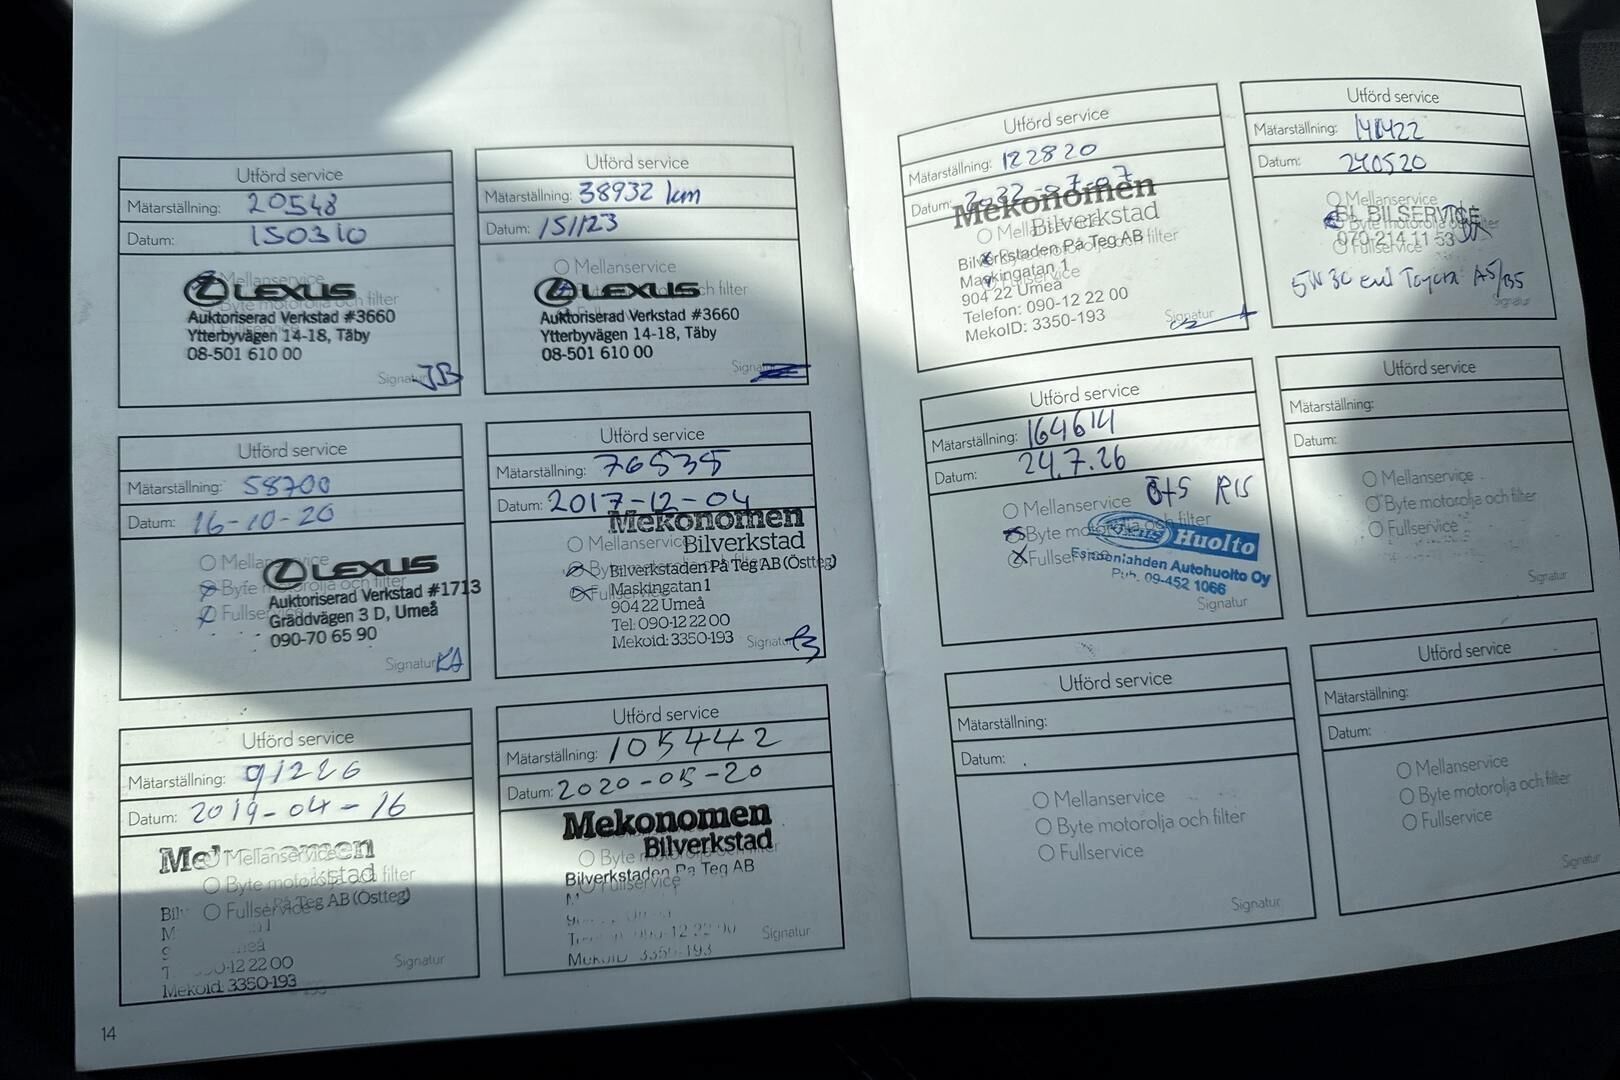 Utförd service
Mätarställning: 20548
Datum: 150310
Mellanservice
Byte motorolja och filter
LEXUS
Auktoriserad Verkstad #3660
Ytterbyvägen 14-18, Täby
08-501 610 00
Signatur JB
Utförd service
Mätarställning: 38932 km
Datum: 151123
Mellanservice
och filter
LEXUS
Auktoriserad Verkstad #3660
Ytterbyvägen 14-18, Täby
08-501 610 00
Utförd service
Mätarställning: 58700
Datum: 16-10-20
Mellanservice
Byte motorolja och filter
Fullservice
LEXUS
Auktoriserad Verkstad #1713
Gräddvägen 3 D, Umeå
090-70 65 90
Signatur KA
Utförd service
Mätarställning: 76535
Datum: 2017-12-04
Mekonomen
Mellanservice
Bilverkstad
Bilverkstaden På Teg AB (Östteg)
Maskingatan 1
904 22 Umeå
Tel: 090-12 22 00
Mekoid: 3350-193
Signatur
Utförd service
Mätarställning: 91226
Datum: 2019-04-16
Mellanservice
Byte motorolja och filter
Fullservice
På Teg AB (Östteg)
12 22 00
Mekoid: 3350-193
Signatur
Utförd service
Mätarställning: 105442
Datum: 2020-05-20
Mekonomen
Bilverkstad
Byte
Bilverkstaden På Teg AB
Fullservice
090-12 22 00
Mekoid 3350-193
Signatur
14
Utförd service
Mätarställning: 122820
Datum: 2022-07-07
Mekonomen
Bilverkstad
Bilverkstaden På Teg AB
Maskingatan 1
904 22 Umeå
Telefon: 090-12 22 00
MekoID: 3350-193
Signatur
Utförd service
Mätarställning: 141422
Datum: 240520
Mellanservice
BL BILSERVICE
Byte motorolja och filter
070-214 11 53
Fullservice
5W30 enl Toyota A5/B5
Signatur
Utförd service
Mätarställning: 164614
Datum: 24.7.26
Mellanservice
Byte motorolja och filter
Huolto
Fullservice
Espoonlahden Autohuolto Oy
Puh. 09-452 1066
Signatur
Utförd service
Mätarställning:
Datum:
Mellanservice
Byte motorolja och filter
Fullservice
Signatur
Utförd service
Mätarställning:
Datum:
Mellanservice
Byte motorolja och filter
Fullservice
Signatur
Utförd service
Mätarställning:
Datum:
Mellanservice
Byte motorolja och filter
Fullservice
Signatur